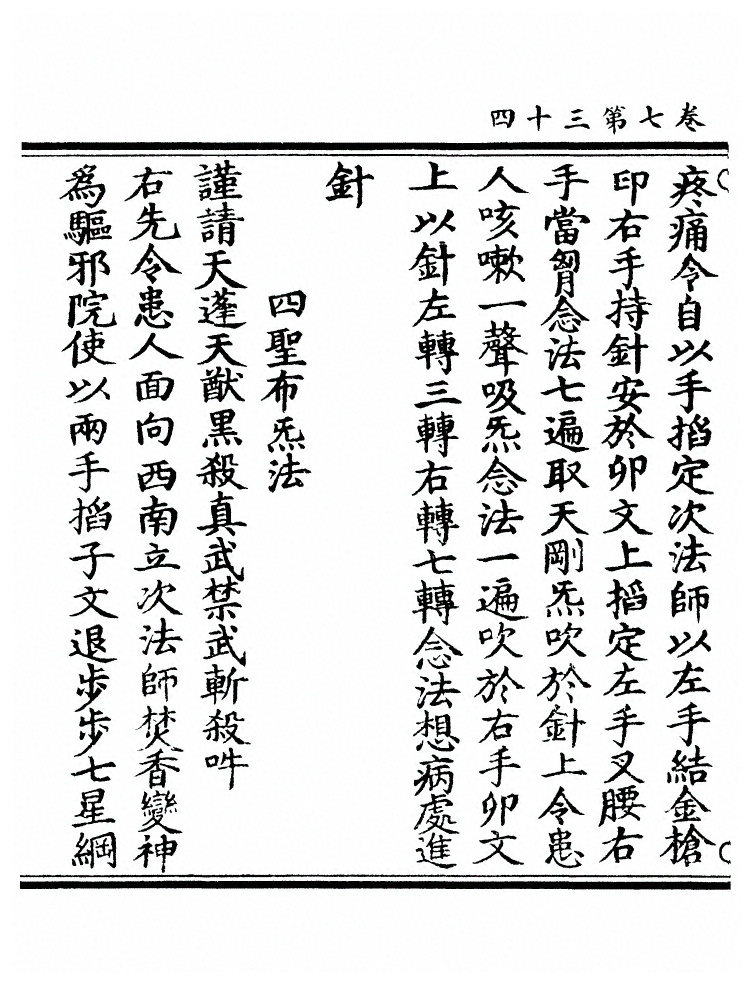 卷七第三十四
疼痛令自以手掐定次法師以左手結金槍
印右手持針安於卯文上掐定左手叉腰右
手當胷念法七遍取天剛炁吹於針上令患
人咳嗽一聲吸炁念法一遍吹於右手卯文
上以針左轉三轉右轉七轉念法想病處進
針
四聖布炁法
謹請天蓬天猷黑殺真武禁武斬殺吽
右先令患人面向西南立次法師焚香變神
為驅邪院使以兩手掐子文退步步七星綱